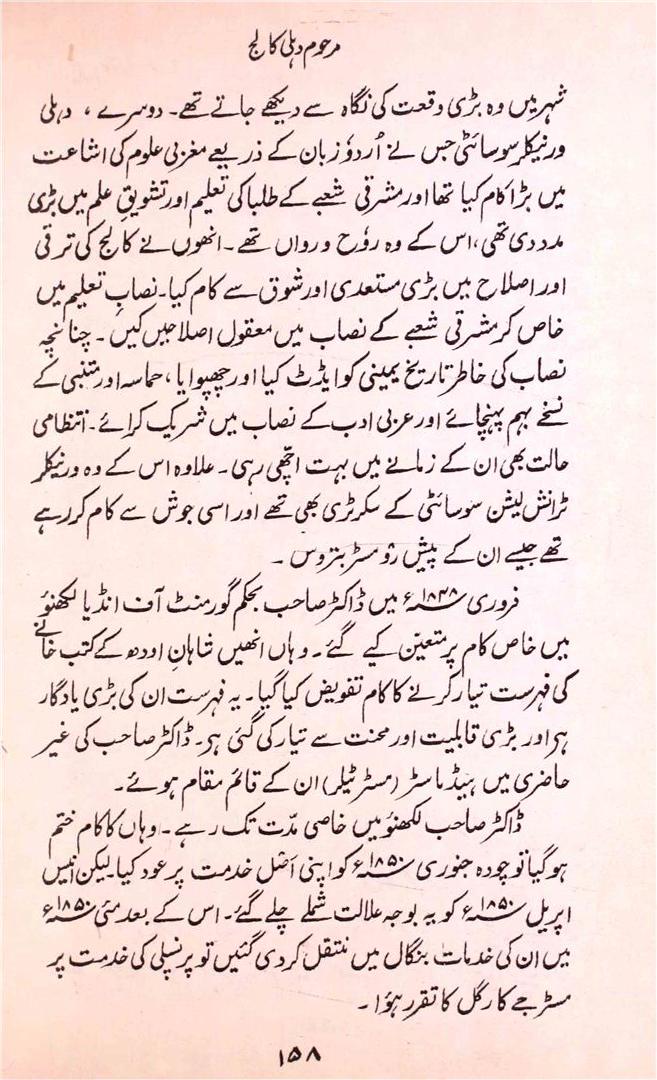 مرحوم دہلی کالج
شہر میں وہ بڑی وقعت کی نگاہ سے دیکھے جاتے تھے۔ دوسرے ، دہلی
ورنیکلر سوسائٹی جس نے اُردوٗ زبان کے ذریعے مغربی علوم کی اشاعت
میں بڑا کام کیا تھا اور مشرقی شعبے کے طلبا کی تعلیم اور تشویقِ علم میں بڑی
مدد دی تھی، اس کے وہ روٗح و رواں تھے۔ انھوں نے کالج کی ترقی
اور اصلاح میں بڑی مستعدی اور شوق سے کام کیا۔ نصابِ تعلیم میں
خاص کر مشرقی شعبے کے نصاب میں معقول اصلاحیں کیں ۔ چنانچہ
نصاب کی خاطر تاریخ یمینی کو ایڈٹ کیا اور چھپوایا ، حماسہ اور متنبی کے
نسخے بہم پہنچائے اور عربی ادب کے نصاب میں شریک کرائے۔ انتظامی
حالت بھی ان کے زمانے میں بہت اچھی رہی ۔ علاوہ اس کے وہ ورنیکلر
ٹرانس لیشن سوسائٹی کے سکرٹری بھی تھے اور اسی جوش سے کام کر رہے
تھے جیسے ان کے پیش رو مسٹر بتروس ۔
فروری ۱۸۴۸ء میں ڈاکٹر صاحب بحکم گورمنٹ آف انڈیا لکھنؤ
میں خاص کام پر متعین کیے گئے ۔ وہاں انھیں شاہانِ اودھ کے کتب خانے
کی فہرست تیار کرنے کا کام تفویض کیا گیا۔ یہ فہرست ان کی بڑی یادگار
ہی اور بڑی قابلیت اور محنت سے تیار کی گئی ہی۔ ڈاکٹر صاحب کی غیر
حاضری میں ہیڈ ماسٹر (مسٹر ٹیلر) ان کے قائم مقام ہوئے ۔
ڈاکٹر صاحب لکھنؤ میں خاصی مدّت تک رہے ۔ وہاں کا کام ختم
ہو گیا تو چودہ جنوری ۱۸۵۰ء کو اپنی اصل خدمت پر عود کیا۔ لیکن انیس
اپریل ۱۸۵۰ء کو بہ بوجہ علالت شملے چلے گئے۔ اس کے بعد مئی ۱۸۵۰ء
میں ان کی خدمات بنگال میں منتقل کر دی گئیں تو پرنسپلی کی خدمت پر
مسٹر جے کارگل کا تقرر ہؤا ۔
۱۵۸